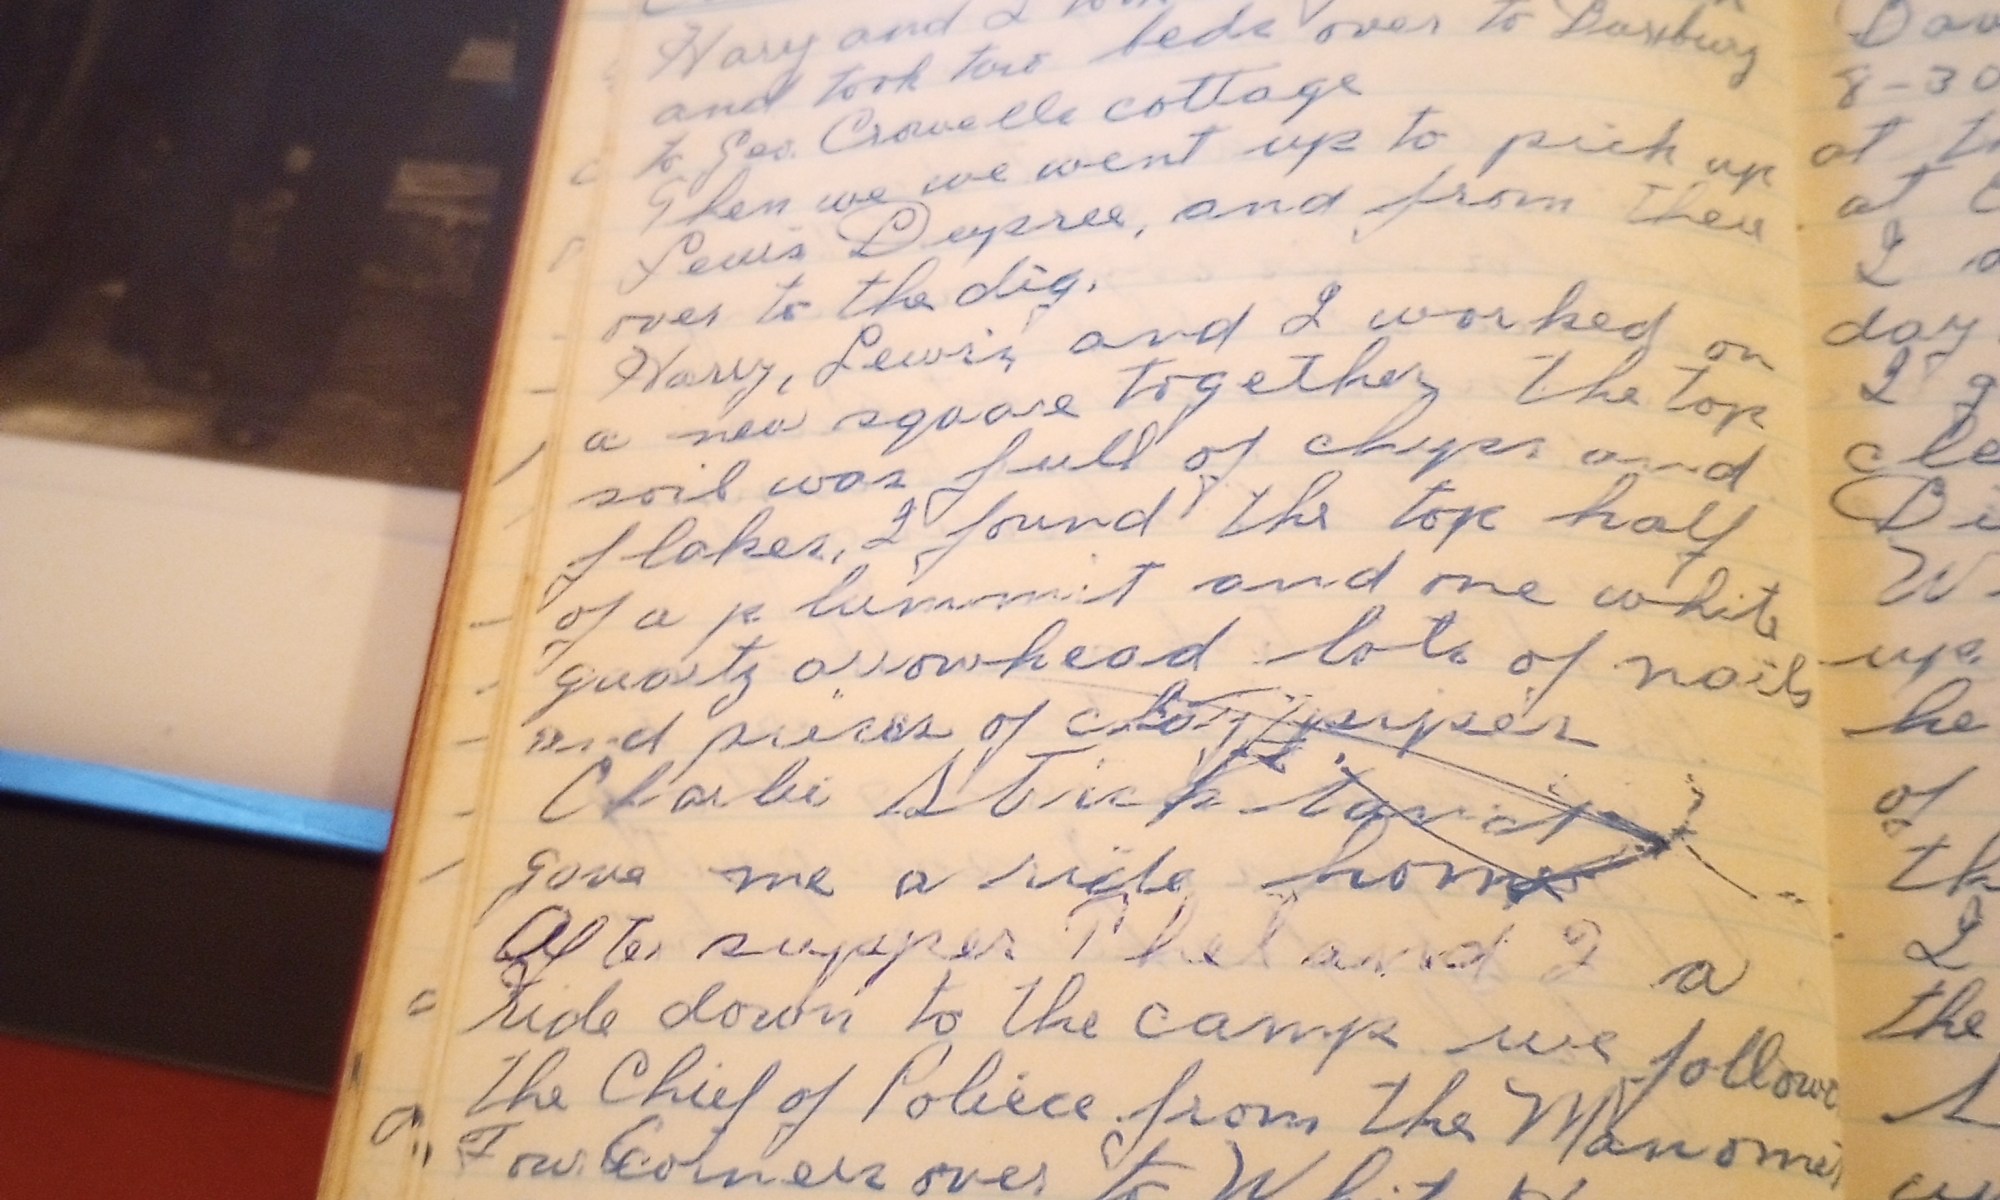 Harry and I took
and took two beds over to Duxbury
to Geo. Crowells cottage
Then we we went up to pick up
Lewis Dupree, and from there
over to the dig.
Harry, Lewis and I worked on
a new square together the top
soil was full of chips and
flakes, I found the top half
of a plummit and one white
quartz arrowhead lots of nails
and pieces of clay pipes
Charlie
gave me a ride home
After supper Thel and I a
ride down to the camp we follow
the Chief of Police from the Manomet
Four Corners over to Whit
Dav
8-30
at th
at
I
day
I g
cle
Di
W
up
he
of
th
I
the